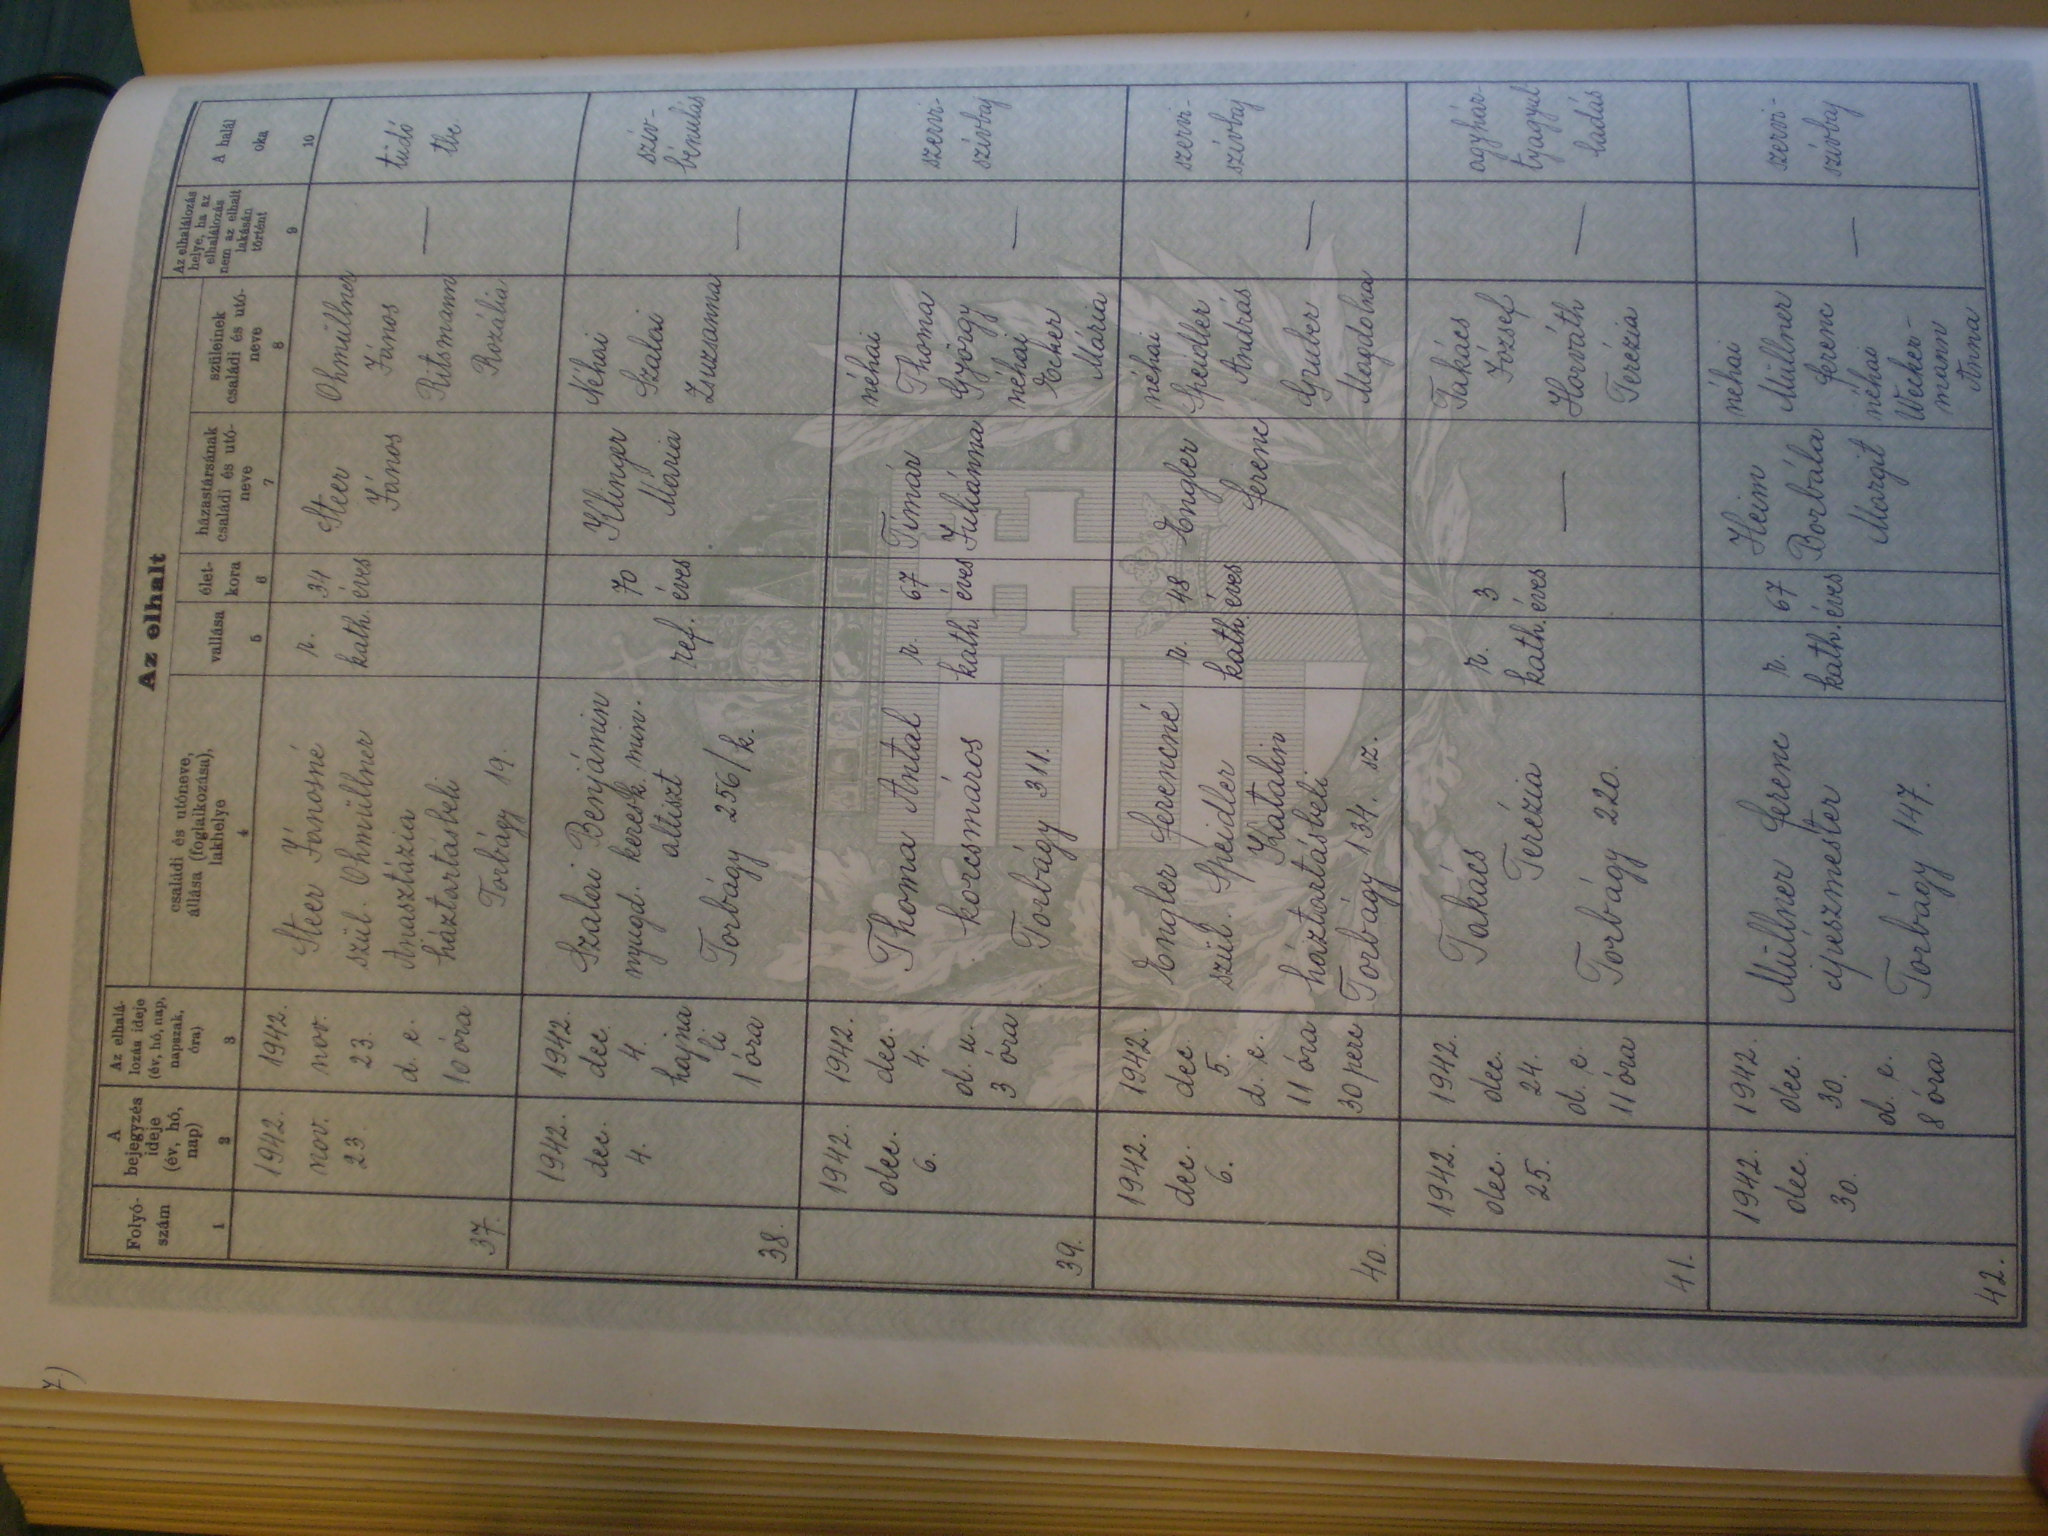 7)
Az elhalt
Folyó-
szám
A
bejegyzés
ideje
(év, hó,
nap)
Az elhalá-
lozás ideje
(év, hó, nap,
napszak,
óra)
családi és utóneve,
állása (foglalkozása),
lakhelye
vallása
élet-
kora
házastársának
családi és utó-
neve
szüleinek
családi és utó-
neve
Az elhalálozás
helye, ha az
elhalálozás
nem az elhalt
lakásán
történt
A halál
oka
1
2
3
4
5
6
7
8
9
10
37.
1942.
nov.
23.
1942.
nov.
23.
d. e.
10 óra
Steer Jánosné
szül. Ohmüllner
Anasztázia
háztartásbeli
Torbágy 19.
r.
kath.
34
éves
Steer
János
Ohmüllner
János
Ritsmann
Rozália
—
tüdő
tbc.
38.
1942.
dec.
4.
1942.
dec.
4.
hajna
li
1 óra
Szalai Benjámin
nyugd. keresk. min.
altiszt
Torbágy 256/k.
ref.
70
éves
Klinger
Mária
Néhai
Szalai
Zsuzsanna
—
szív-
bénulás
39.
1942.
dec.
6.
1942.
dec.
4.
d. u.
3 óra
Thoma Antal
korcsmáros
Torbágy 311.
r.
kath.
67
éves
Timár
Juliánna
néhai
Thoma
György
néhai
Ecker
Mária
—
szervi-
szívbaj
40.
1942.
dec.
6.
1942.
dec.
5.
d. e.
11 óra
30 perc
Engler Ferencné
szül. Speidler
Katalin
háztartásbeli
Torbágy 134. sz.
r.
kath.
48
éves
Engler
Ferenc
néhai
Speidler
András
Gruber
Magdolna
—
szervi-
szívbaj
41.
1942.
dec.
25.
1942.
dec.
24.
d. e.
11 óra
Takács
Terézia
Torbágy 220.
r.
kath.
3
éves
—
Takács
József
Horváth
Terézia
—
agyhár-
tyagyul-
ladás
42.
1942.
dec.
30.
1942.
dec.
30.
d. e.
8 óra
Müllner Ferenc
cipészmester
Torbágy 147.
r.
kath.
67
éves
Heim
Borbála
Margit
néhai
Müllner
Ferenc
néhai
Wecker-
mann
Anna
—
szervi-
szívbaj